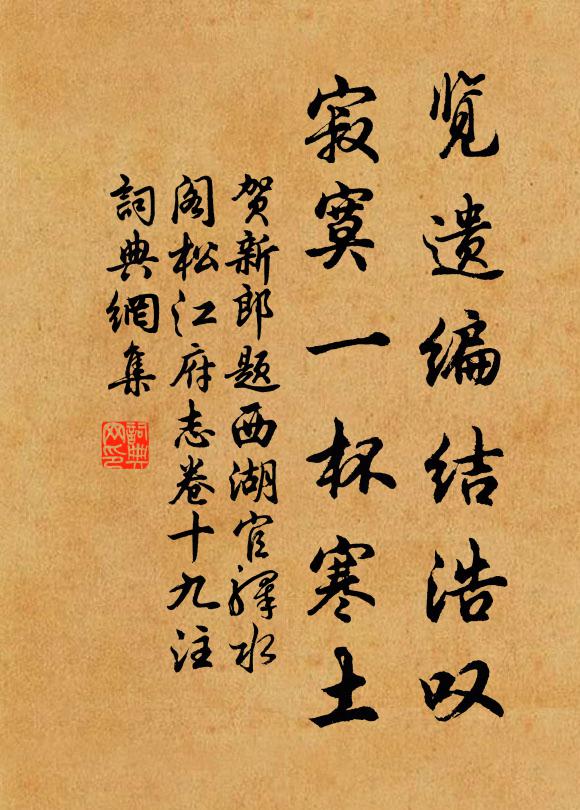 览遗编结浩叹
寂寞一杯寒土
贺新郎题西湖官驿水
阁松江府志卷十九注
詞典網集
詞典
网印